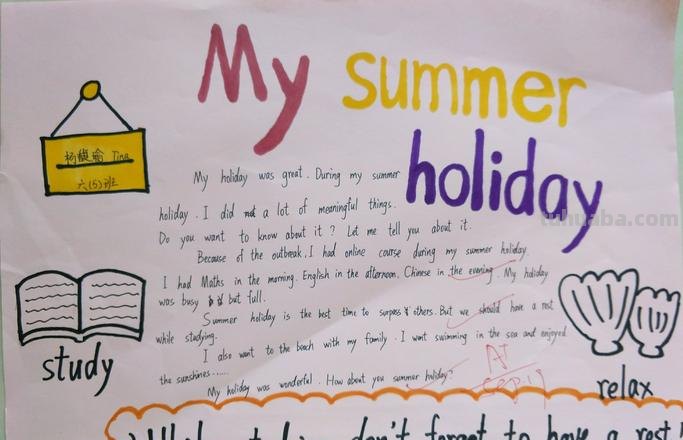 My summer
holiday
杨馥瑜 Tina
六(5)班
My holiday was great. During my summer
holiday. I did a lot of meaningful things.
Do you want to know about it? Let me tell you about it.
Because of the outbreak, I had online course during my summer holiday.
I had Maths in the morning. English in the afternoon. Chinese in the evening. My holiday
was busy but full.
Summer holiday is the best time to surpass others. But we should have a rest
while studying.
I also want to the beach with my family. I want swimming in the sea and enjoyed
the sunshines......
My holiday was wonderful. How about you summer holiday?
study
relax
A+
tuhuaba.com
don't forget to have a rest